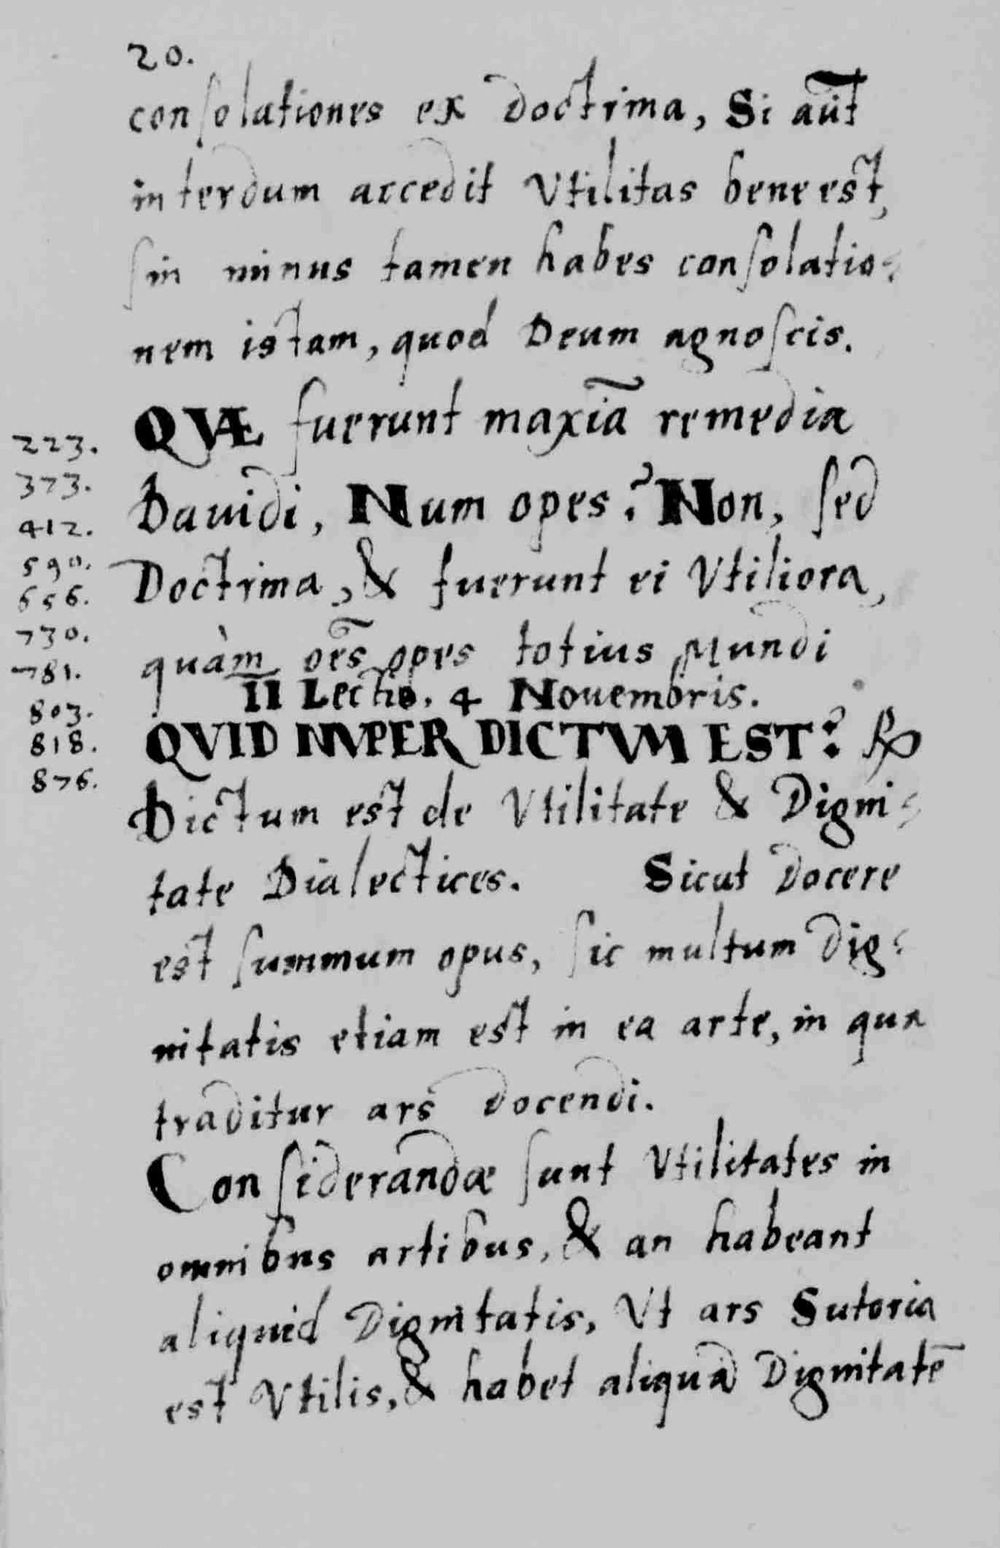 20.
consolationes ex doctrina, Si aūt
interdum accedit Vtilitas bene est,
sin minus tamen habes consolatio-
nem istam, quod Deum agnoscis.
QVÆ fuerunt maxīa remedia
223.
373.
Dauidi, Num opes? Non, sed
412.
590.
Doctrina, & fuerunt ei Vtiliora,
656.
730.
quàm oēs opes totius Mundi
781.
II Lectio. 4 Nouembris.
803.
QVID NVPER DICTVM EST? ℞
818.
876.
Dictum est de Vtilitate & Digni-
tate Dialectices. Sicut docere
est summum opus, sic multum dig-
nitatis etiam est in ea arte, in qua
traditur ars docendi.
Considerandæ sunt Vtilitates in
omnibus artibus, & an habeant
aliquid Dignitatis, Vt ars Sutoria
est Vtilis, & habet aliquā Dignitatē